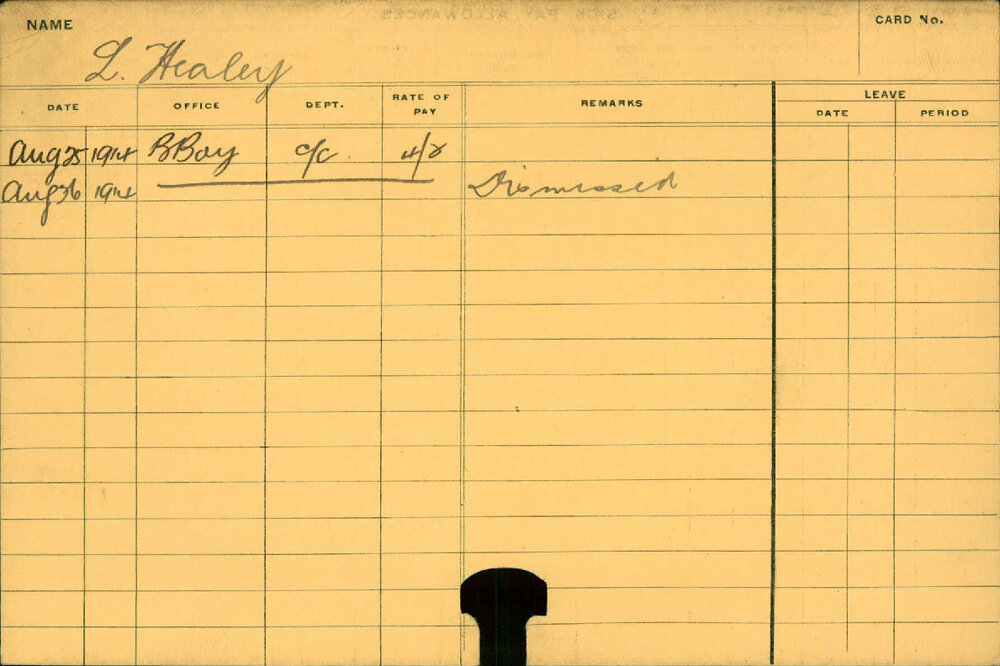 NAME
CARD No.
L. Healey
DATE OFFICE DEPT. RATE OF PAY REMARKS LEAVE
DATE PERIOD
Aug 25 1914 BBoy c/c. 4/2
Aug 26 1914 Dismissed